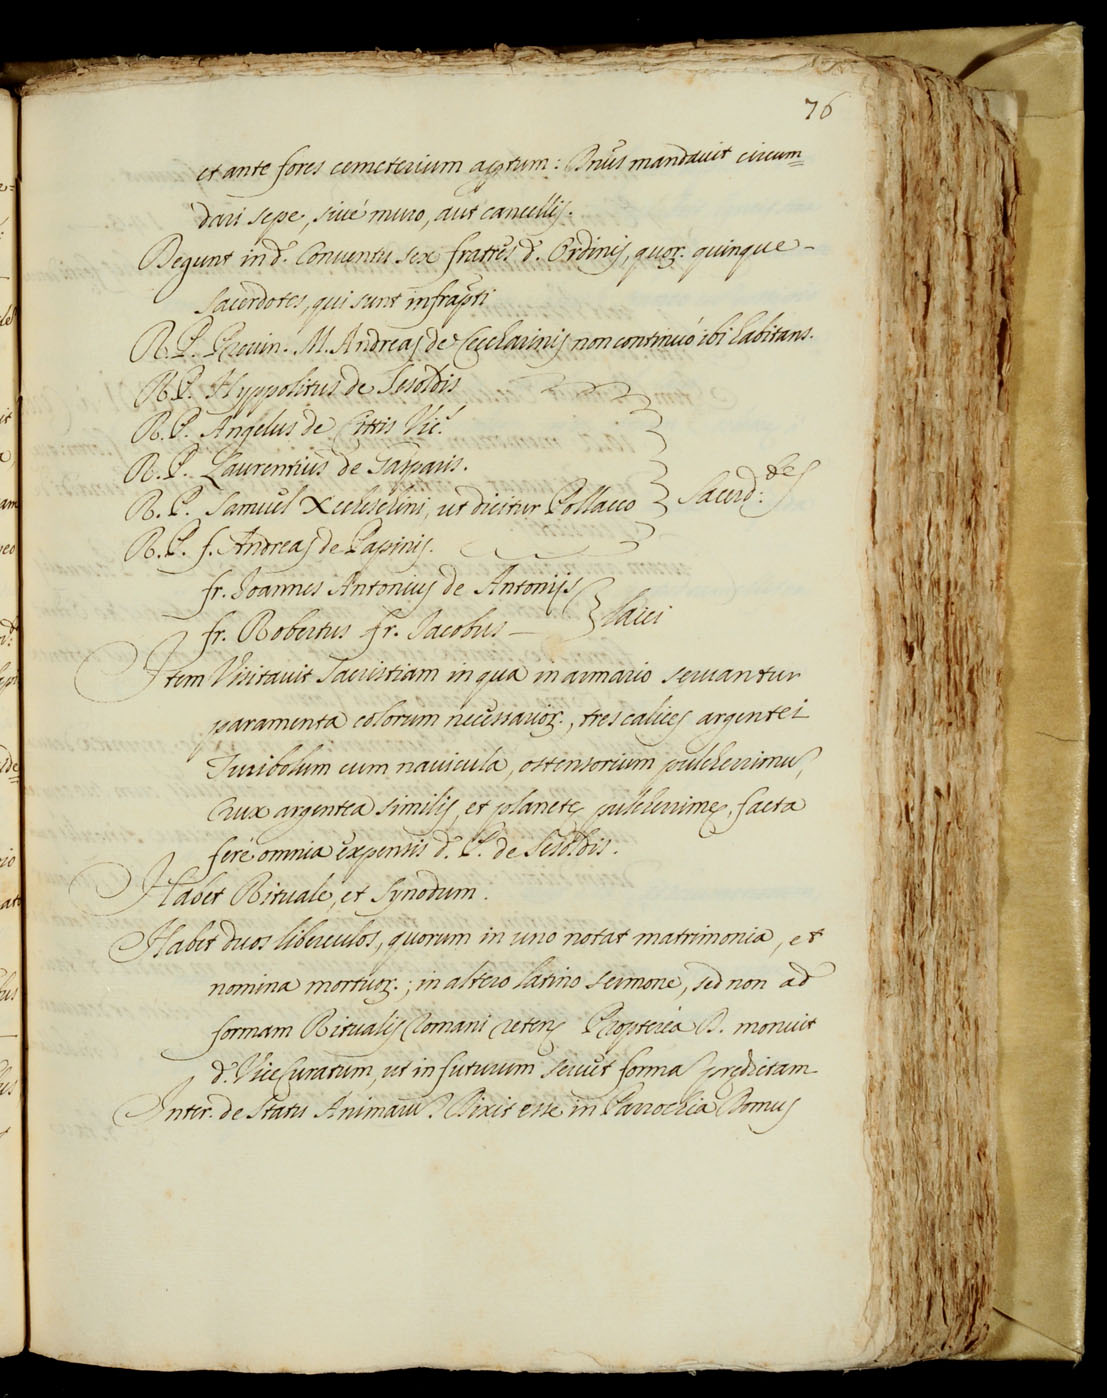 76
et ante fores cemeterium aptum: Dnus mandauit circum=
dari sepe, siue muro, aut cancellis.
Degunt in d. Conuentu sex fratres d. Ordinis, quor. quinque -
sacerdotes, qui sunt infrapti
R. P. Prouin. M. Andreas de Ceccharinis non continuò ibi habitans.
R. P. Hyppolitus de Sesoldis
R. P. Angelus de Cittis Vic.
R. P. Laurentius de Gasparis.
R. P. Samuel ut dicitur Pollacco Sacerd:tes
R. P. f. Andreas de Papinis.
fr. Joannes Antonius de Antonijs
fr. Robertus fr. Jacobus — laici
Item Visitauit Sacristiam in qua in armario seruantur
paramenta colorum necessarior., tres calices argentei
Turibolum cum nauicula, ostensorium pulcherrimu,
crux argentea similis, et planete pulcherrime, facta
ferè omnia expensis d. P. de Sesoldis.
Habet Rituale, et Synodum.
Habet duos liberculos, quorum in uno notat matrimonia, et
nomina mortuor.; in altero latino sermone, sed non ad
formam Ritualis Romani Proptereà D. monuit
d. ViceCuratum, ut in futurum seruet forma predictam
Inter. de Statu Animaru? Dixit esse in Parrochia Domus